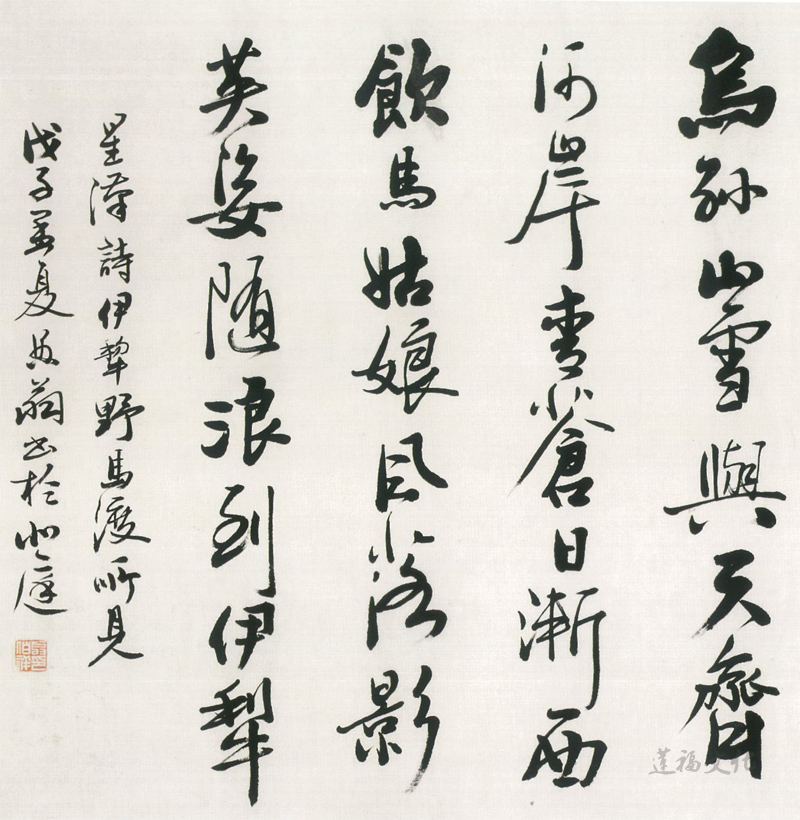 烏孫山雪與天齊
河岸青蒼日漸西
飲馬姑娘風落影
英姿隨浪到伊犁
星漢詩伊犁野馬渡所見
戊子孟夏翁書於北庭
蓮福文化